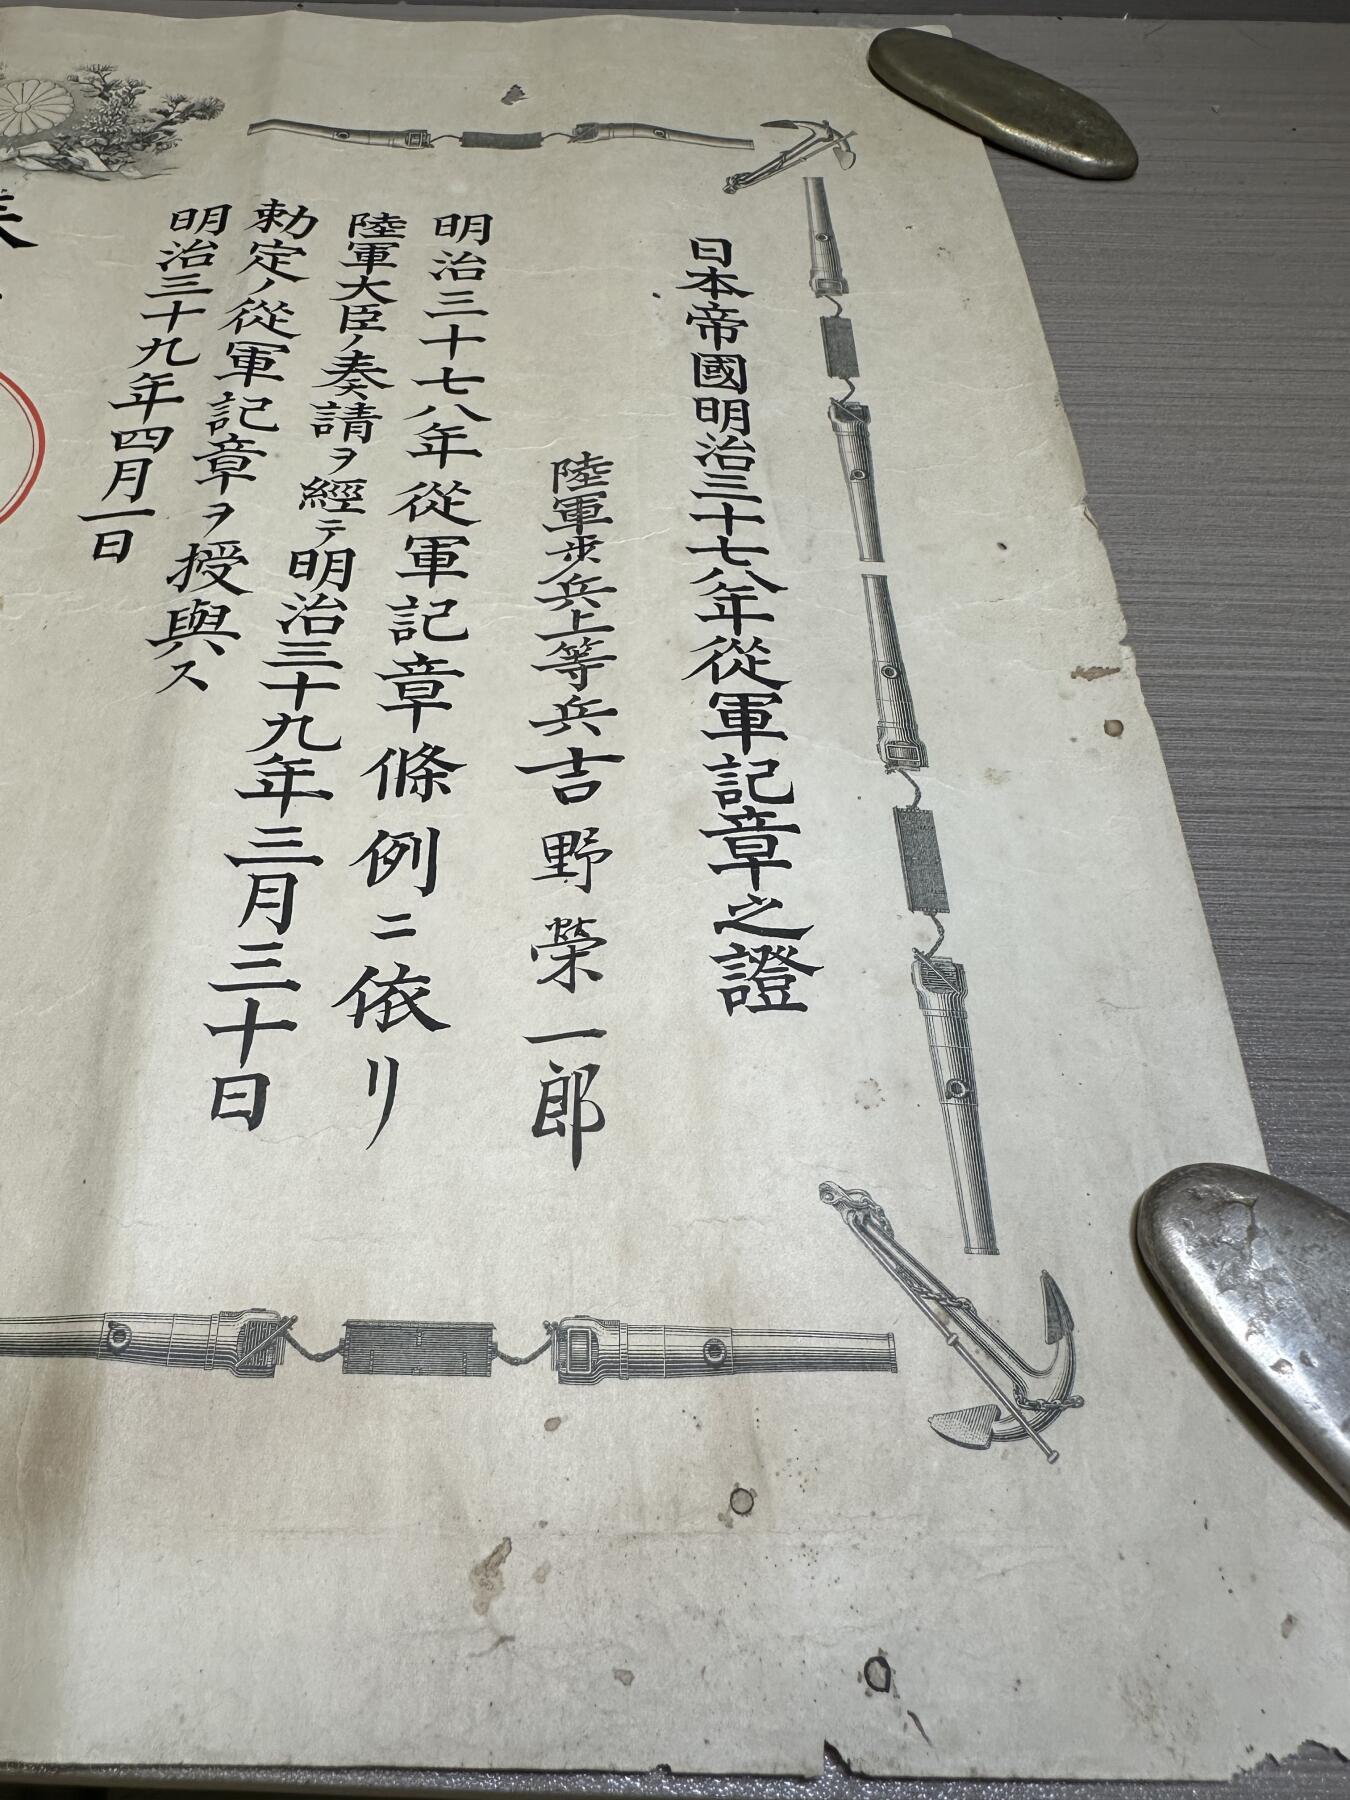 日本帝國明治三十七八年從軍記章之證
陸軍歩兵上等兵吉野榮一郎
明治三十七八年從軍記章條例ニ依リ
陸軍大臣ノ奏請ヲ經テ明治三十九年三月三十日
勅定ノ從軍記章ヲ授與ス
明治三十九年四月一日